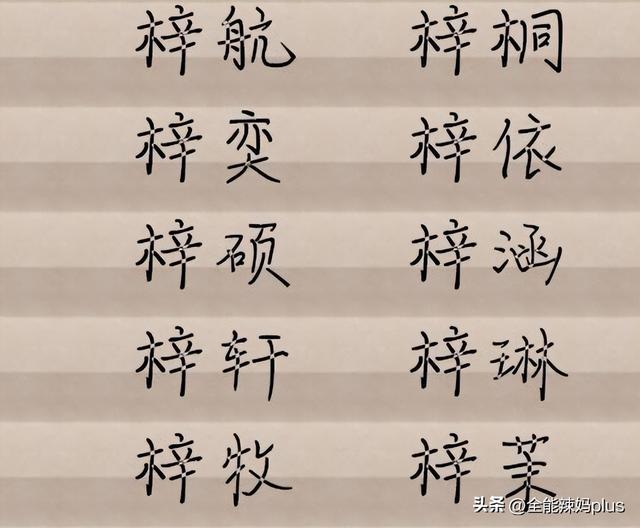 梓航 梓桐
梓奕 梓依
梓硕 梓涵
梓轩 梓琳
梓牧 梓茉
头条 @全能辣妈plus